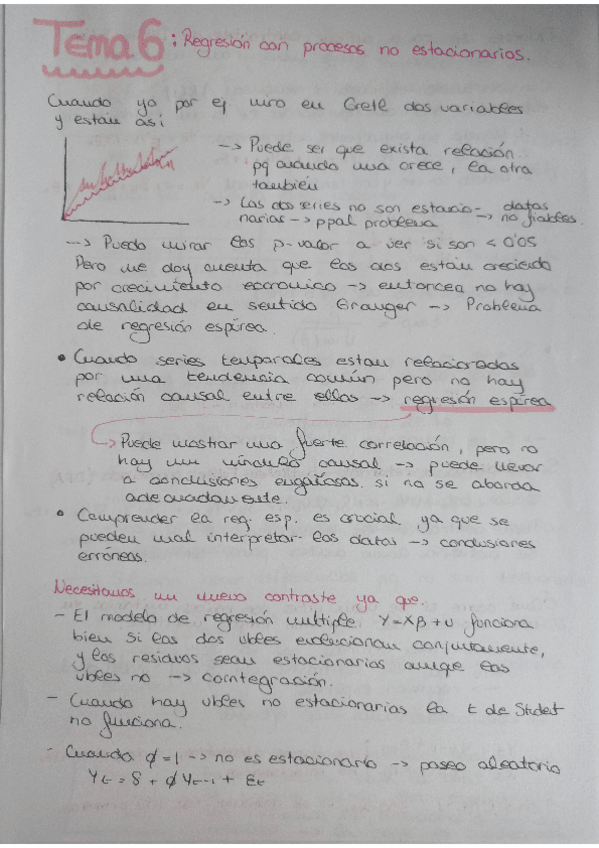 Tema 6: Regresión con procesos no estacionarios.
Cuando yo por ej miro en Gretl dos variables
y están así
-> Puede ser que exista relación
pq cuando una crece, la otra
también
-> Las dos series no son estacio-
narias -> ppal problema -> datos
no fiables.
-> Puedo mirar los p-valor a ver si son < 0'05
Pero me doy cuenta que los dos están creciendo
por crecimiento económico -> entonces no hay
causalidad en sentido Granger -> Problema
de regresión espúrea.
• Cuando series temporales están relacionadas
por una tendencia común pero no hay
relación causal entre ellas -> regresión espúrea
Puede mostrar una fuerte correlación, pero no
hay un vínculo causal -> puede llevar
a conclusiones engañosas si no se aborda
adecuadamente.
• Comprender la reg. esp. es crucial ya que se
pueden mal interpretar los datos -> conclusiones
erróneas.
Necesitamos un nuevo contraste ya que.
- El modelo de regresión multiple Y=Xβ+U funciona
bien si las dos vbles evolucionan conjuntamente,
y los residuos sean estacionarios aunque las
vbles no -> cointegración.
- Cuando hay vbles no estacionarias la t de Stdet
no funciona.
- Cuando ϕ=1 -> no es estacionario -> paseo aleatorio
Yt = δ + ϕYt-1 + Et